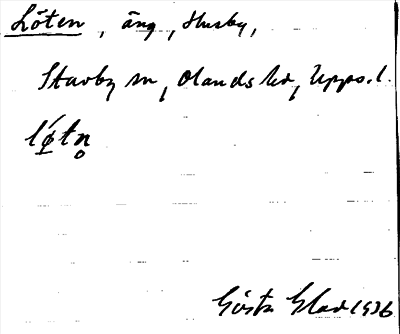 Löten, äng, Husby,
Stavby sn, Olands hd, Upps. l.
lø̄́tn̥
Gösta Glad 1936